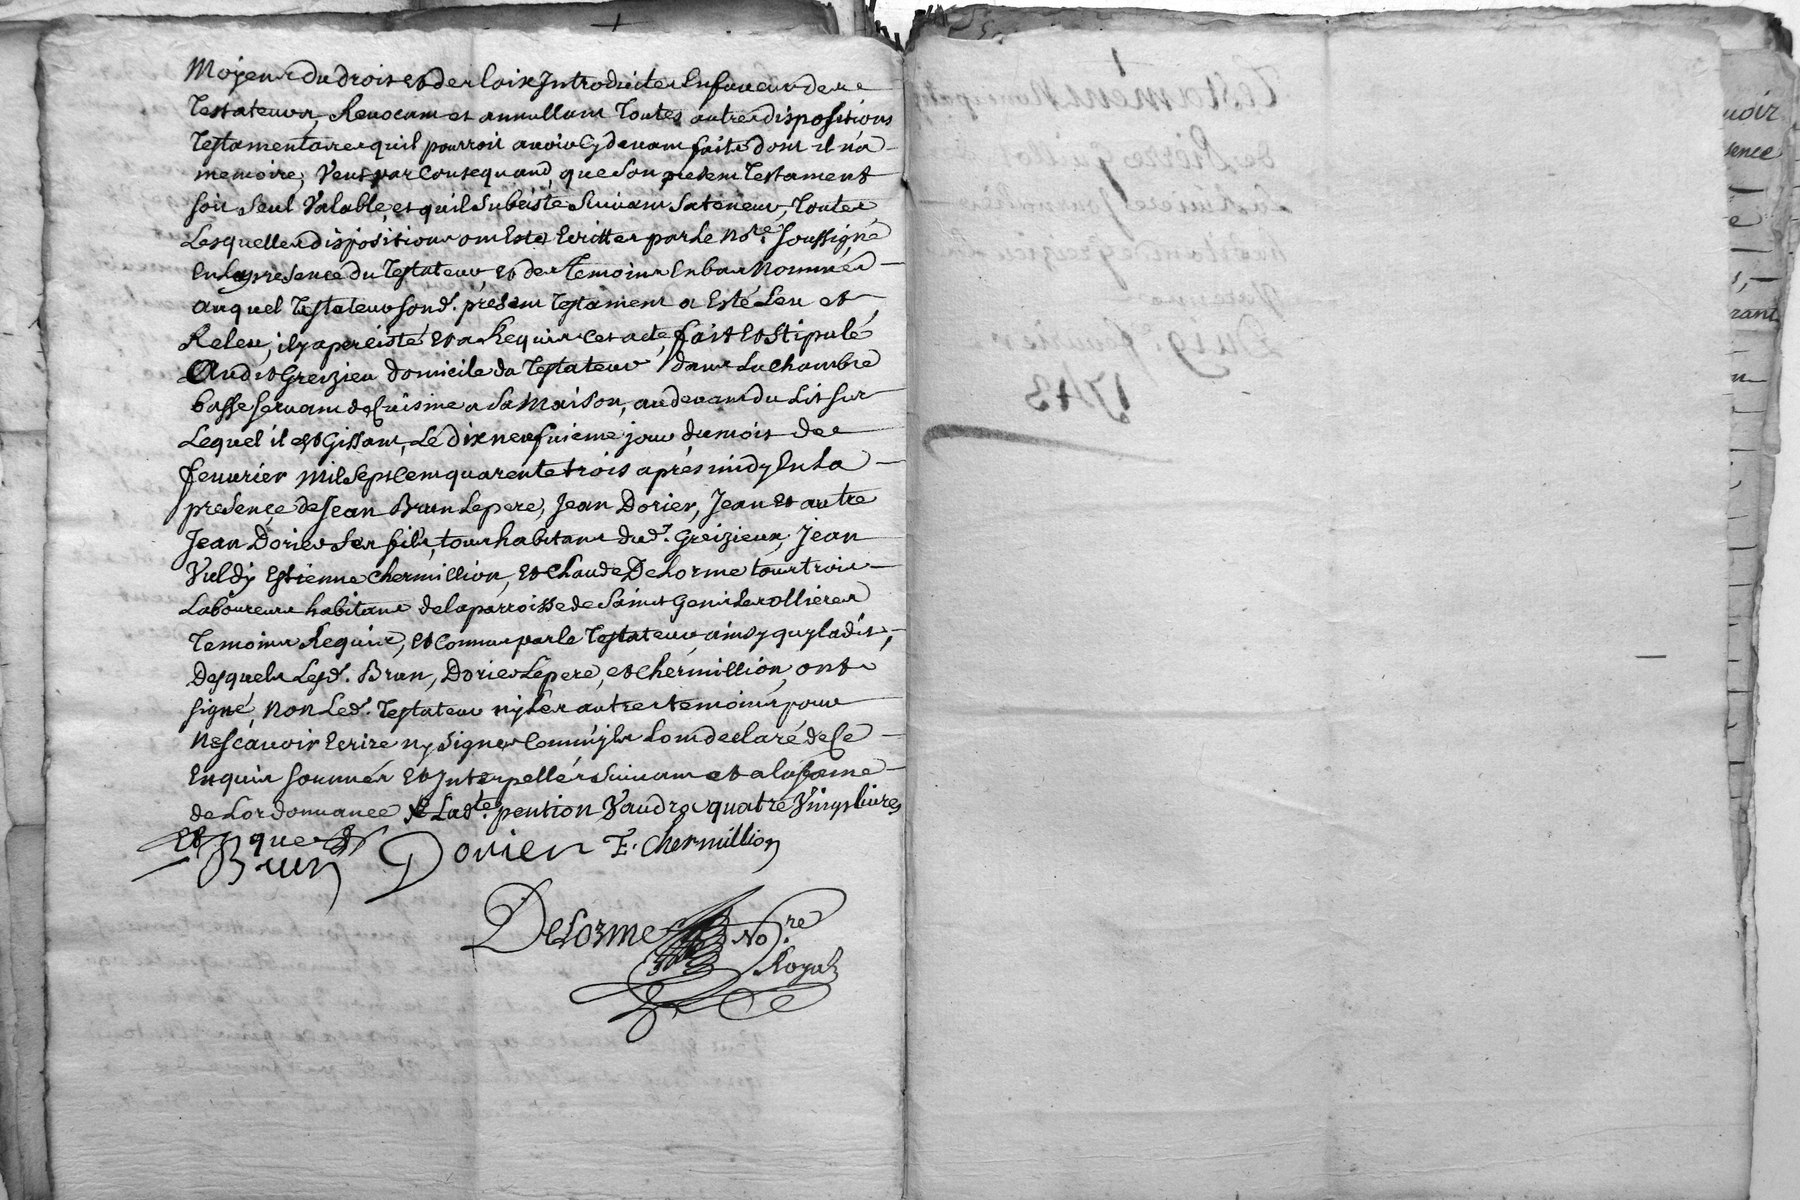 Moyens du droit et des loix Introduites En faveur des
Testateurs, Revocant et annullant Toutes autres dispositions
Testamentaires quil pourroit avoir Cy devant faite dont il n'a
memoire, Veut par Consequand, que Son present Testament
soit Seul Valable, et qu'il Subciste Suivant Sa teneur, Toutes
Lesquelles dispositions ont Estés Ecrittes par Le No.re Soussigné
En La presence du Testateur et des Temoins En bas Nommés
auquel Testateur sond. présent Testament a Esté Leu et
Releu, il y a perciste et a Requis Cet acte, fait et Stipulé
Aud.t Greizieu domicile du Testateur, dans La chambre
basse servant de Cuisine a Sa Maison, au devant du Lit sur
Lequel il est Gissant, Le dix neufvieme jour du mois de
fevurier Mil Sept Cent quarente trois après midy En La
presence de Jean Brun Le pere, Jean Dorier, Jean et autre
Jean Dorier Ses fils, tous habitans dud.t Greizieux, Jean
Vuldy Estienne Chermillion, et Claude DeLorme tous trois
Laboureurs habitans de la parroisse de Saint Genis Les ollieres
Temoins Requis, et Connus par le Testateur ainsy quyl a dit,
Desquels Lesd. Brun, Dorier Le pere, et Chermillion, ont
signé, Non Led. Testateur ny Les autres temoins pour
Ne sçavoir Ecrire ny Signer Comm'yls L'ont declaré de Ce
Enquis sommés Et Interpellés Suivant et a la forme
de L'ordonnance et Lad.te pention Vaudra quatre Vingts livres
Brun Dorier E. Chermillion
DeLorme No.re
Royal
Testament
de Pierre
1743
uoir
sence
rant